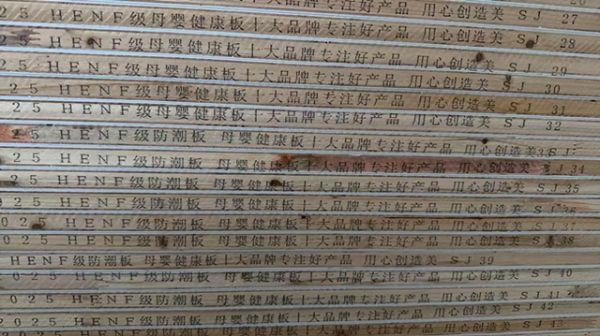 26
25 HENF级母婴健康板十大品牌专注好产品 用心创造美 SJ 27
25 HENF级母婴健康板十大品牌专注好产品 用心创造美 SJ 28
25 HENF级母婴健康板十大品牌专注好产品 用心创造美 SJ 29
25 HENF级母婴健康板十大品牌专注好产品 用心创造美 SJ 30
25 HENF级母婴健康板十大品牌专注好产品 用心创造美 SJ 31
25 HENF级母婴健康板十大品牌专注好产品 用心创造美 SJ 32
25 HENF级防潮板 母婴健康板十大品牌专注好产品 用心创造美 33
25 HENF级防潮板 母婴健康板十大品牌专注好产品 用心创造美 SJ 34
25 HENF级防潮板 母婴健康板十大品牌专注好产品 用心创造美 SJ 35
025 HENF级防潮板 母婴健康板十大品牌专注好产品 用心创造美 SJ 36
025 HENF级防潮板 母婴健康板十大品牌专注好产品 用心创造美 SJ 38
HENF级防潮板 母婴健康板十大品牌专注好产品 用心创造美 SJ 39
025 HENF级防潮板 母婴健康板十大品牌专注好产品 用心创造美 SJ 40
2025 HENF级防潮板 母婴健康板十大品牌专注好产品 用心创造美 SJ 41
025 HENF级防潮板 母婴健康板十大品牌专注好产品 用心创造美 SJ